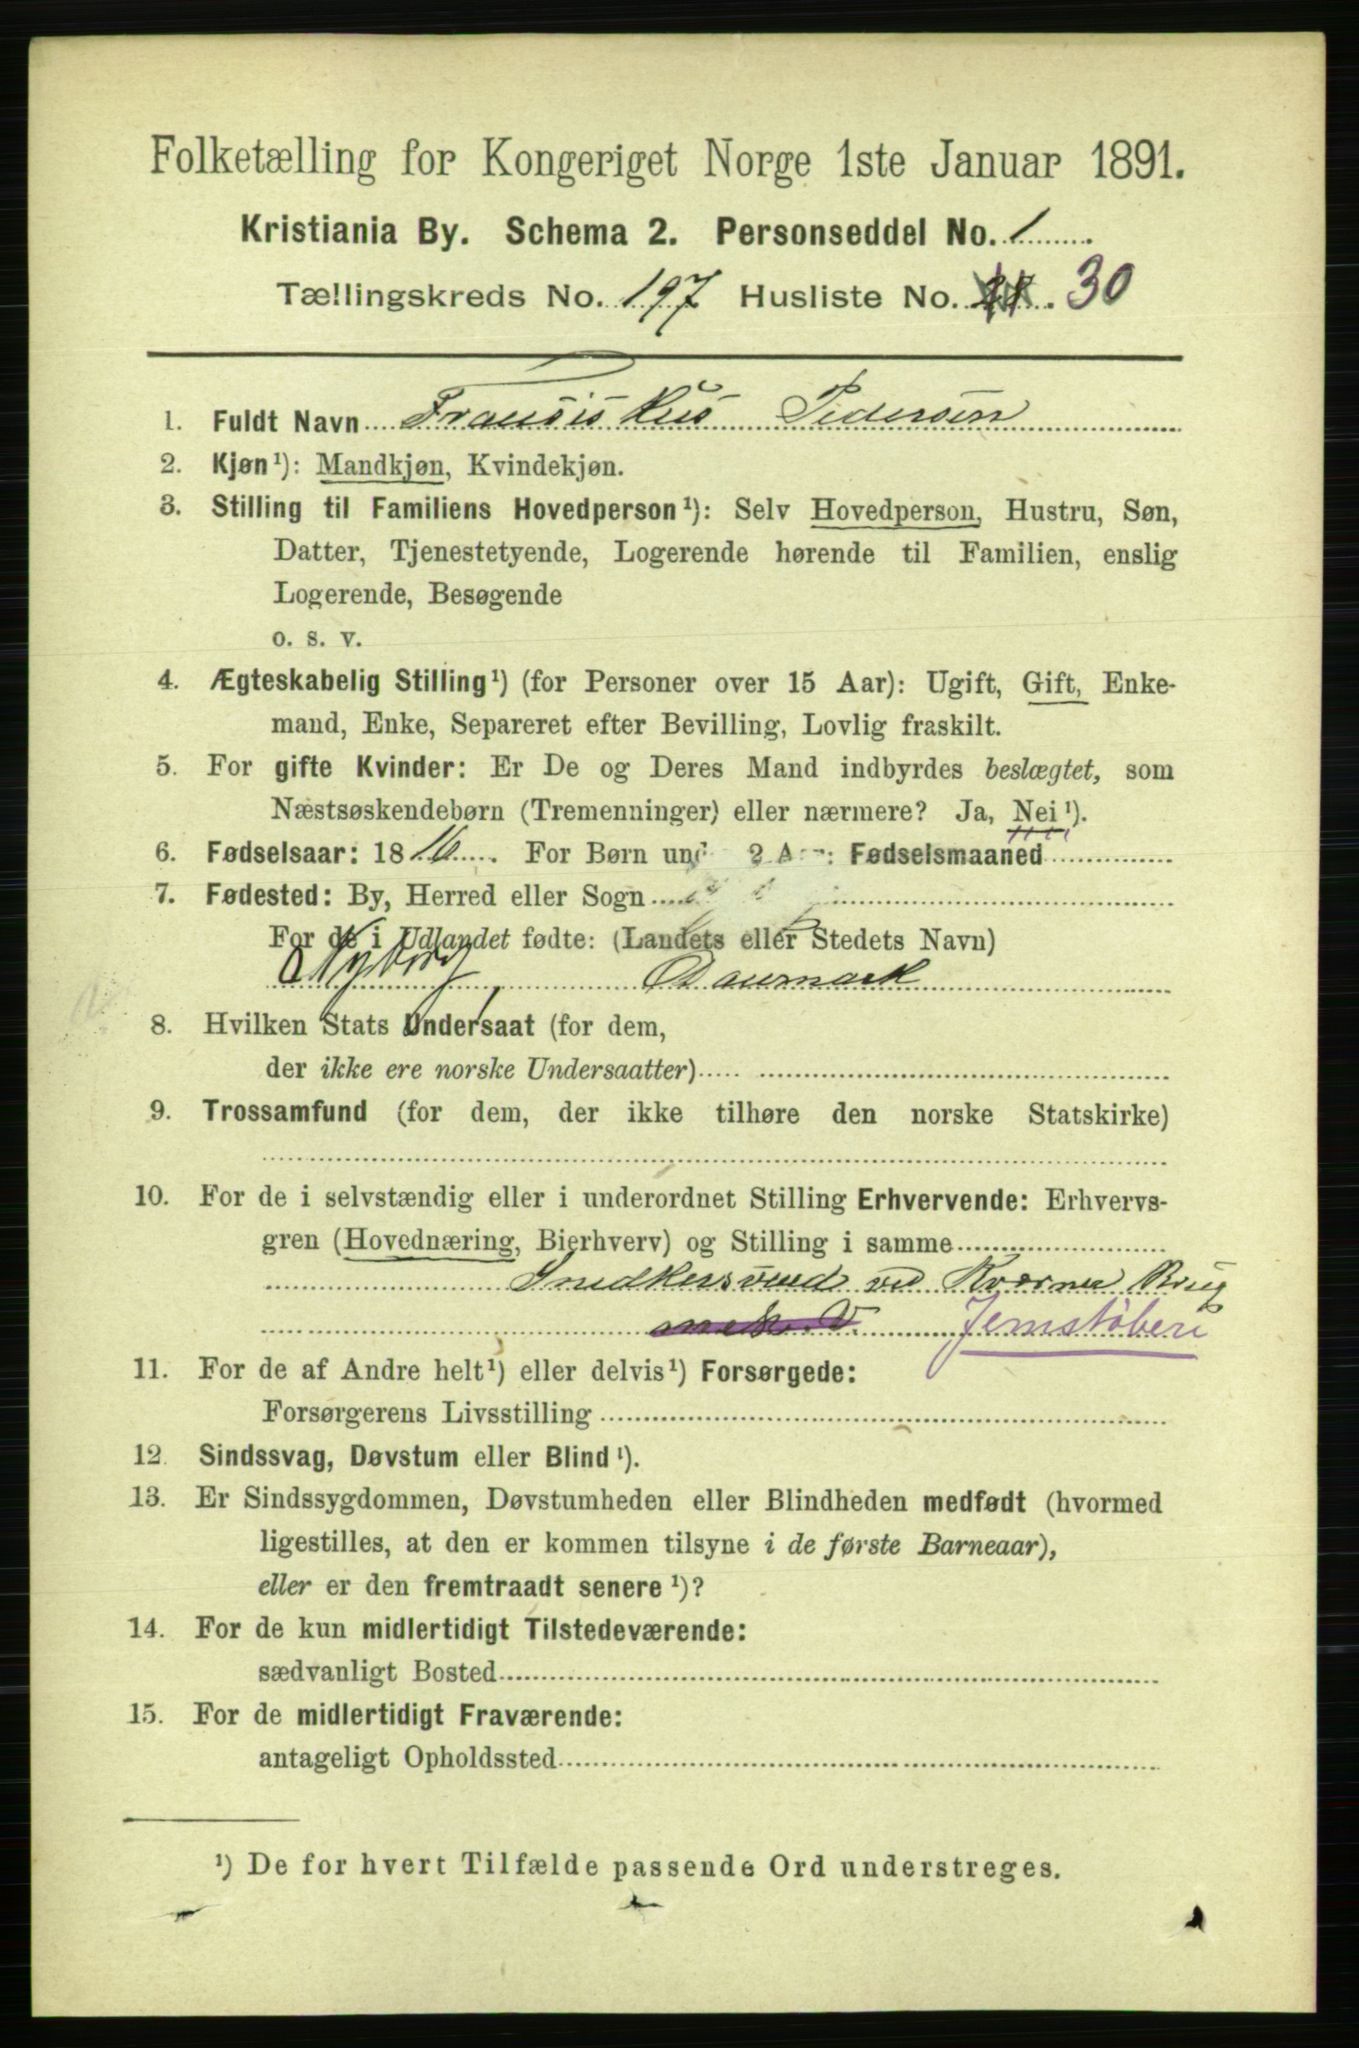 Folketælling for Kongeriget Norge 1ste Januar 1891.
Kristiania By. Schema 2. Personseddel No. 1
Tællingskreds No. 197 Husliste No. 30
1. Fuldt Navn Fransiskus Pedersen
2. Kjøn¹): Mandkjøn, Kvindekjøn.
3. Stilling til Familiens Hovedperson¹): Selv Hovedperson, Hustru, Søn,
Datter, Tjenestetyende, Logerende hørende til Familien, enslig
Logerende, Besøgende
o. s. v.
4. Ægteskabelig Stilling¹) (for Personer over 15 Aar): Ugift, Gift, Enke-
mand, Enke, Separeret efter Bevilling, Lovlig fraskilt.
5. For gifte Kvinder: Er De og Deres Mand indbyrdes beslægtet, som
Næstsøskendebørn (Tremenninger) eller nærmere? Ja, Nei¹).
6. Fødselsaar: 1816. For Børn und 2 A : Fødselsmaaned
7. Fødested: By, Herred eller Sogn
For de i Udlandet fødte: (Landets eller Stedets Navn)
Nyborg Danmark
8. Hvilken Stats Undersaat (for dem,
der ikke ere norske Undersaatter)
9. Trossamfund (for dem, der ikke tilhøre den norske Statskirke)
10. For de i selvstændig eller i underordnet Stilling Erhvervende: Erhvervs-
gren (Hovednæring, Bierhverv) og Stilling i samme
Snedkersvend ved Kværner Brug
mek. V. Jernstøberi
11. For de af Andre helt¹) eller delvis¹) Forsørgede:
Forsørgerens Livsstilling
12. Sindssvag, Døvstum eller Blind¹).
13. Er Sindssygdommen, Døvstumheden eller Blindheden medfødt (hvormed
ligestilles, at den er kommen tilsyne i de første Barneaar),
eller er den fremtraadt senere¹)?
14. For de kun midlertidigt Tilstedeværende:
sædvanligt Bosted
15. For de midlertidigt Fraværende:
antageligt Opholdssted
¹) De for hvert Tilfælde passende Ord understreges.